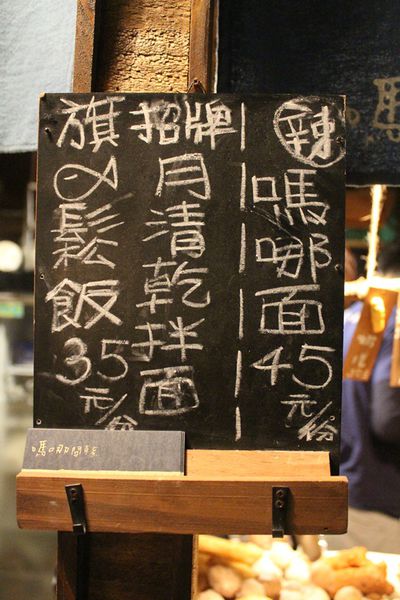 辣嗎哪面45元/份
招牌月清乾拌面
旗鬆飯35元/份
嗎哪